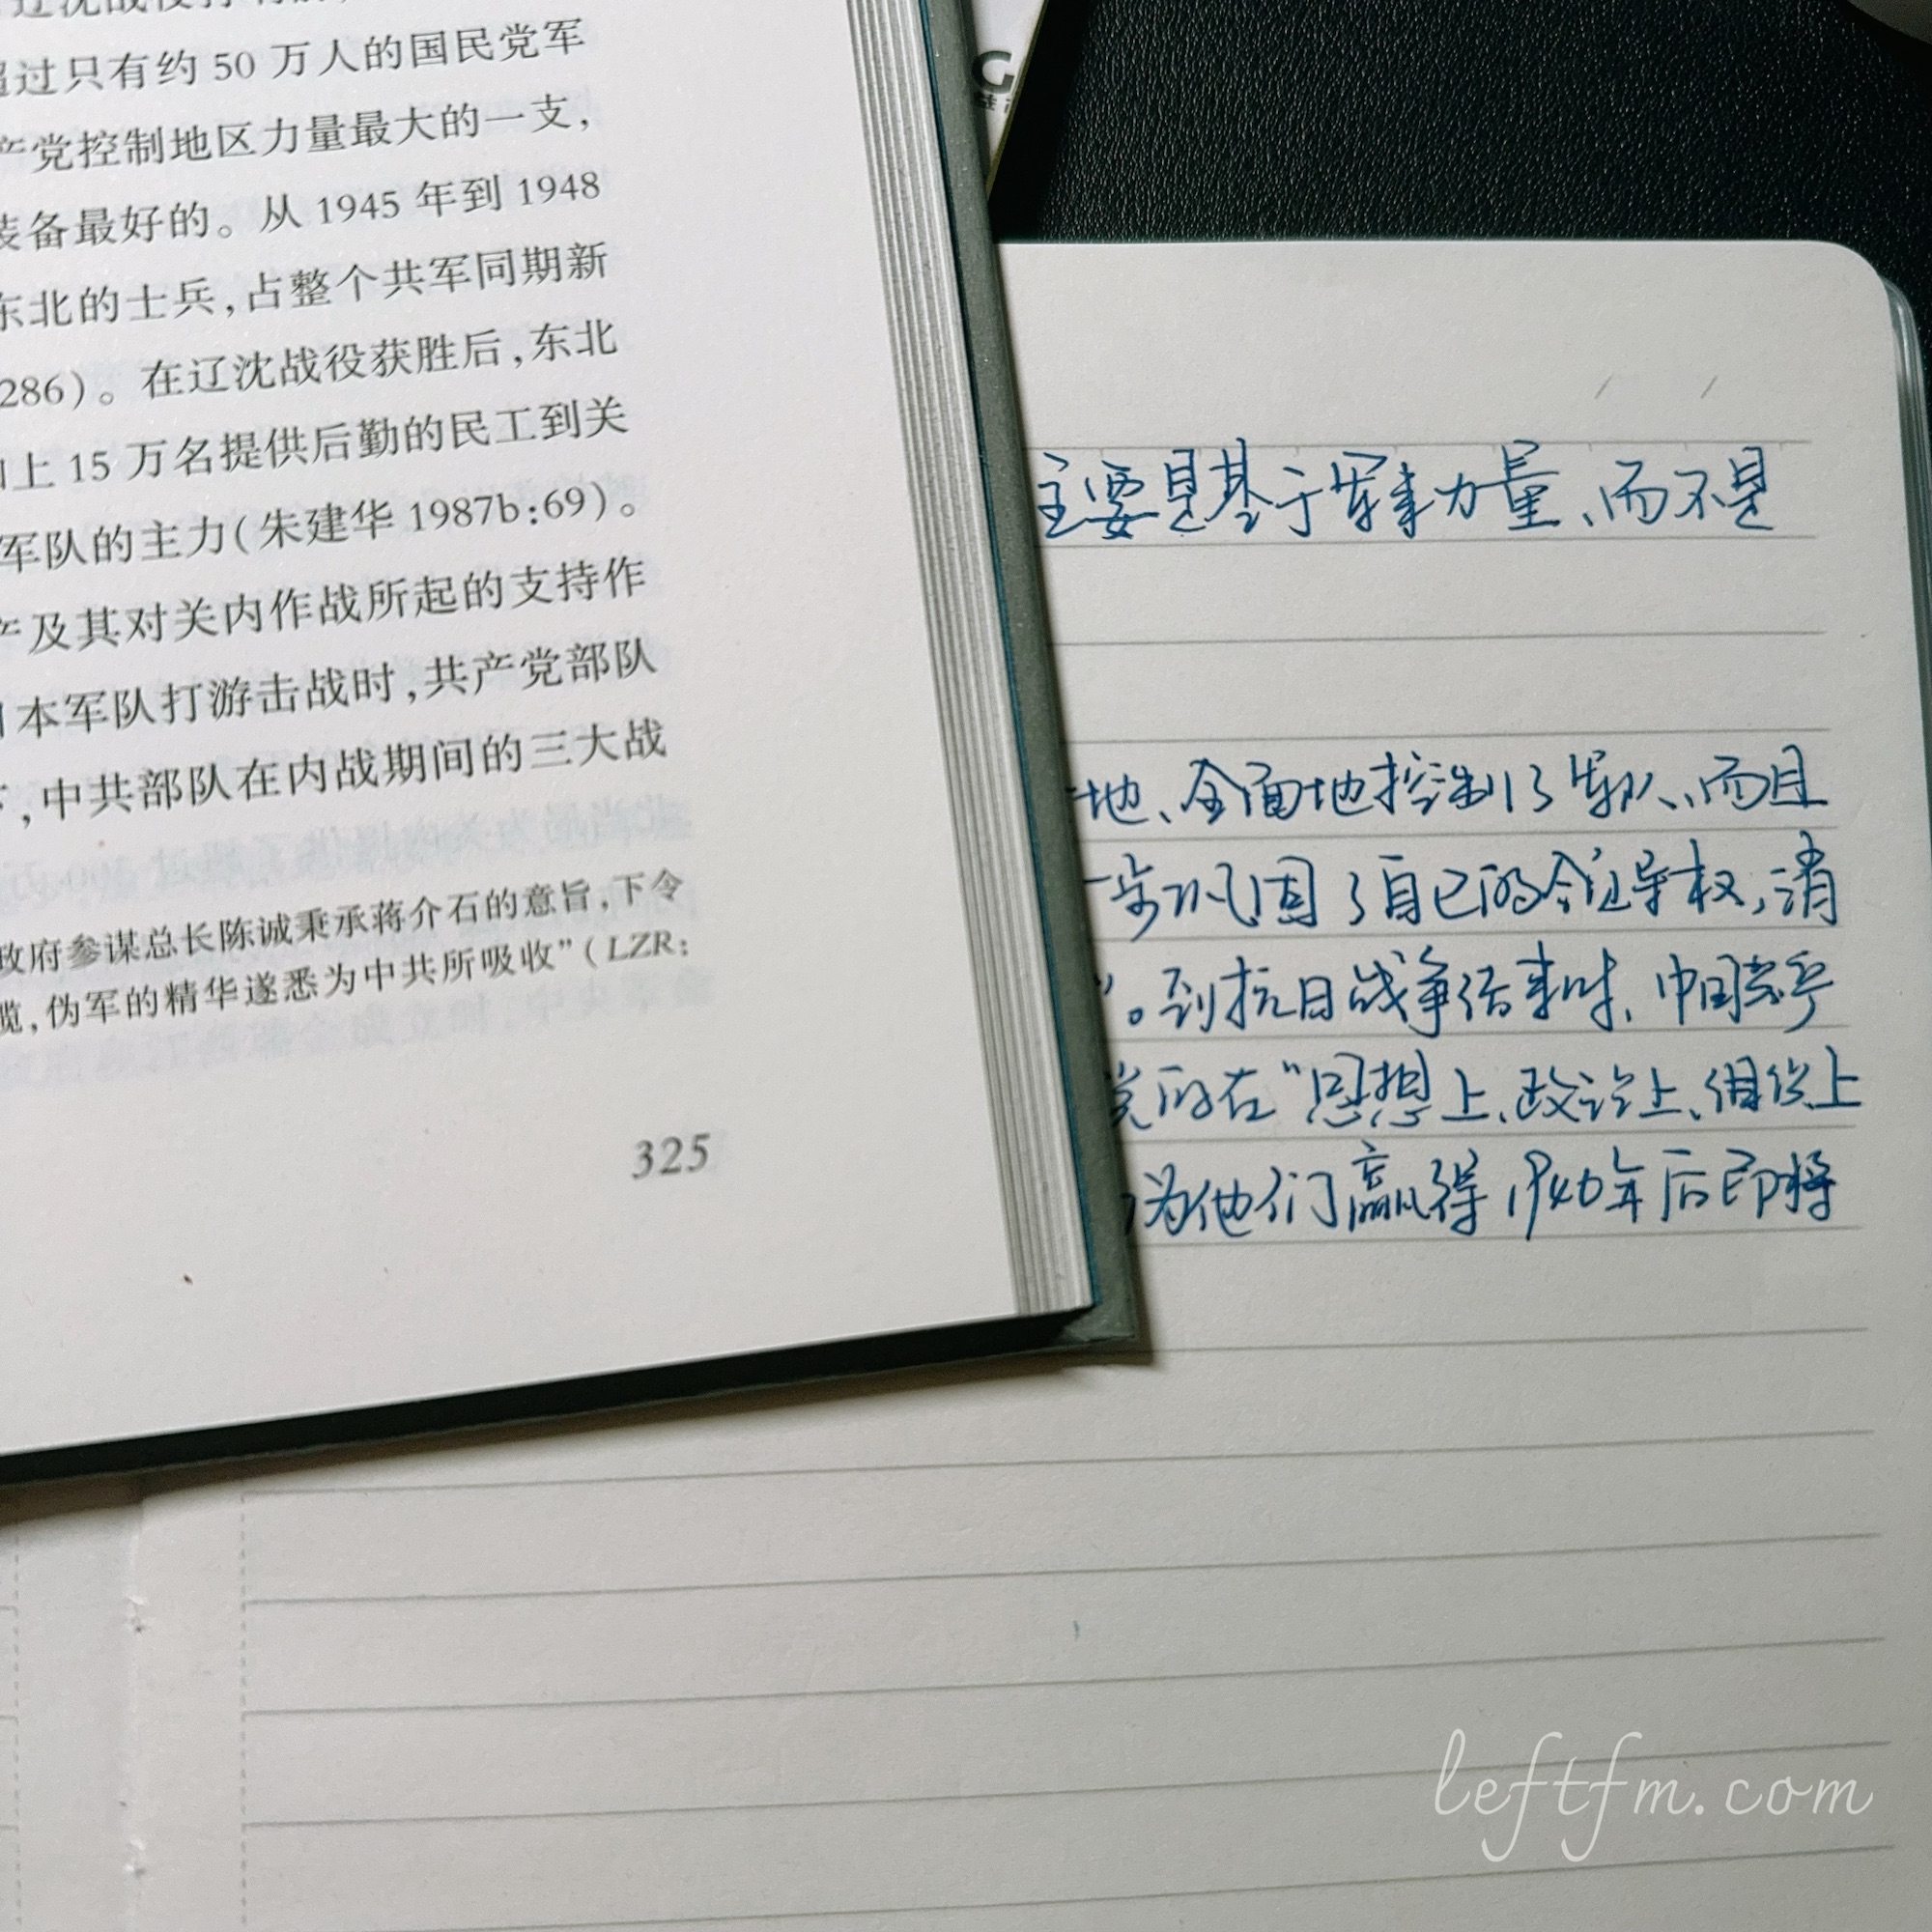 超过只有约50万人的国民党军
产党控制地区力量最大的一支，
装备最好的。从1945年到1948
东北的士兵，占整个共军同期新
286)。在辽沈战役获胜后，东北
上15万名提供后勤的民工到关
军队的主力(朱建华1987b:69)。
产及其对关内作战所起的支持作
本军队打游击战时，共产党部队
，中共部队在内战期间的三大战
政府参谋总长陈诚秉承蒋介石的意旨，下令
揽，伪军的精华遂悉为中共所吸收”(LZR:
325
G
主要是基于军事力量、而不是
地、全面地控制了军队、而且
一步巩固了自己的领导权，消
。到抗日战争结束时、中国共产
党的在“思想上、政治上、组织上
为他们赢得1940年后即将
leftfm.com